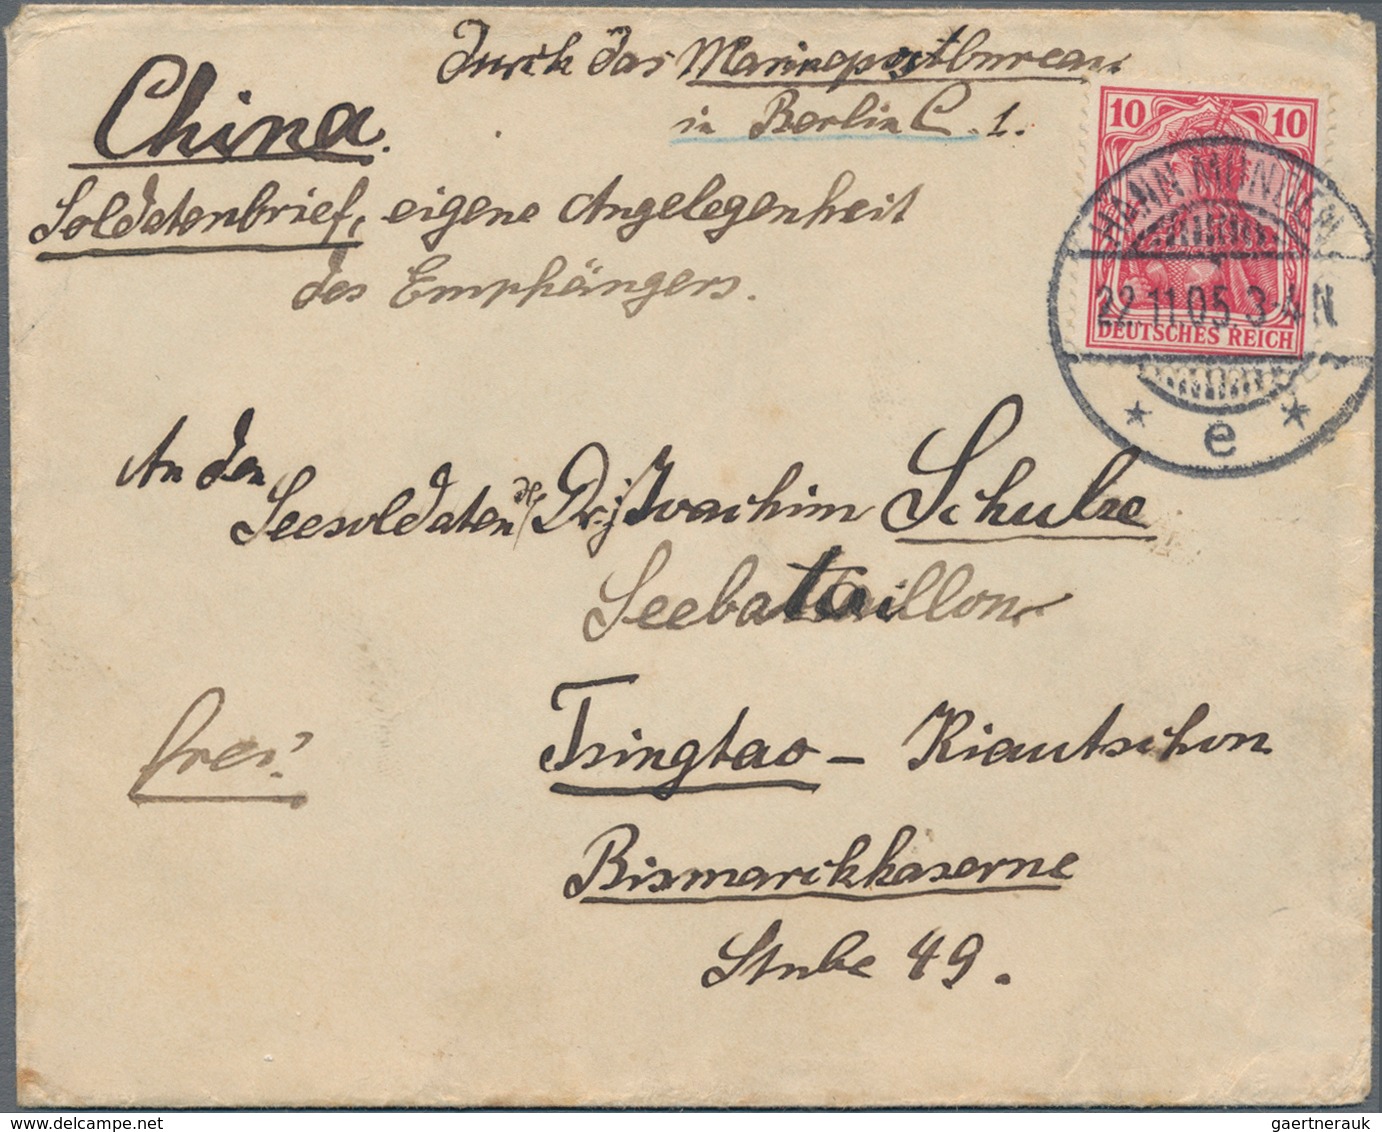 Durch das Marinepostbureau
in Berlin C. 1.
China.
Soldatenbrief, eigene Angelegenheit
des Empfängers.
10 10
DEUTSCHES REICH
HANN. MÜNDEN
22.11.05. 3-4 N
* e *
An den
Seesoldaten Dr. Joachim Schulze
Seebataillon
frei.
Tsingtao – Kiautschou
Bismarckkaserne
Stube 49.
gaertnerauk
delcampe.net